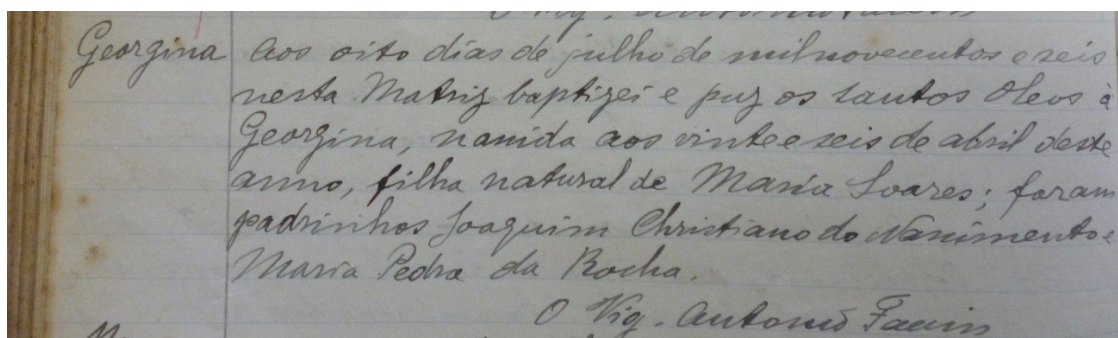 O Vig. Antonio
Georgina
Aos oito dias de julho de mil novecentos e seis
nesta Matriz baptizei e puz os santos Oleos à
Georgina, nascida aos vinte e seis de abril deste
anno, filha natural de Maria Soares; foram
padrinhos Joaquim Christiano do Nascimento e
Maria Pedra da Rocha.
O Vig. Antonio